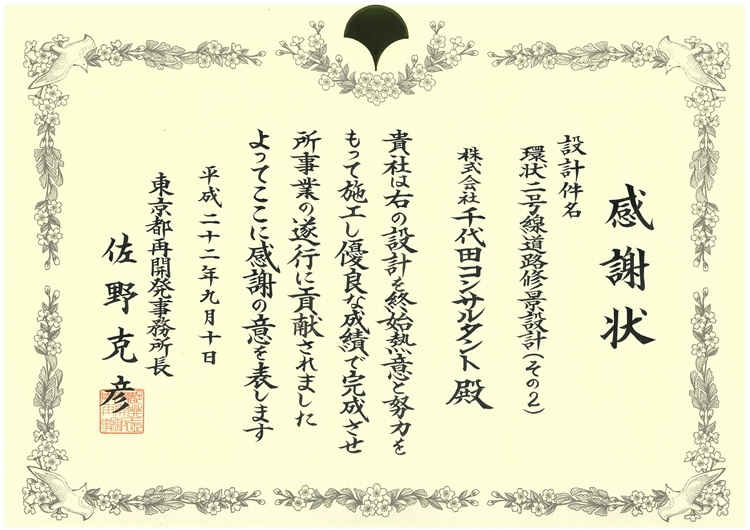 感謝状
設計件名
環状二号線道路修景設計(その2)
株式会社 千代田コンサルタント 殿
貴社は右の設計を終始熱意と努力を
もって施工し優良な成績で完成させ
所事業の遂行に貢献されました
よってここに感謝の意を表します
平成二十二年九月十日
東京都再開発事務所長
佐野克彦